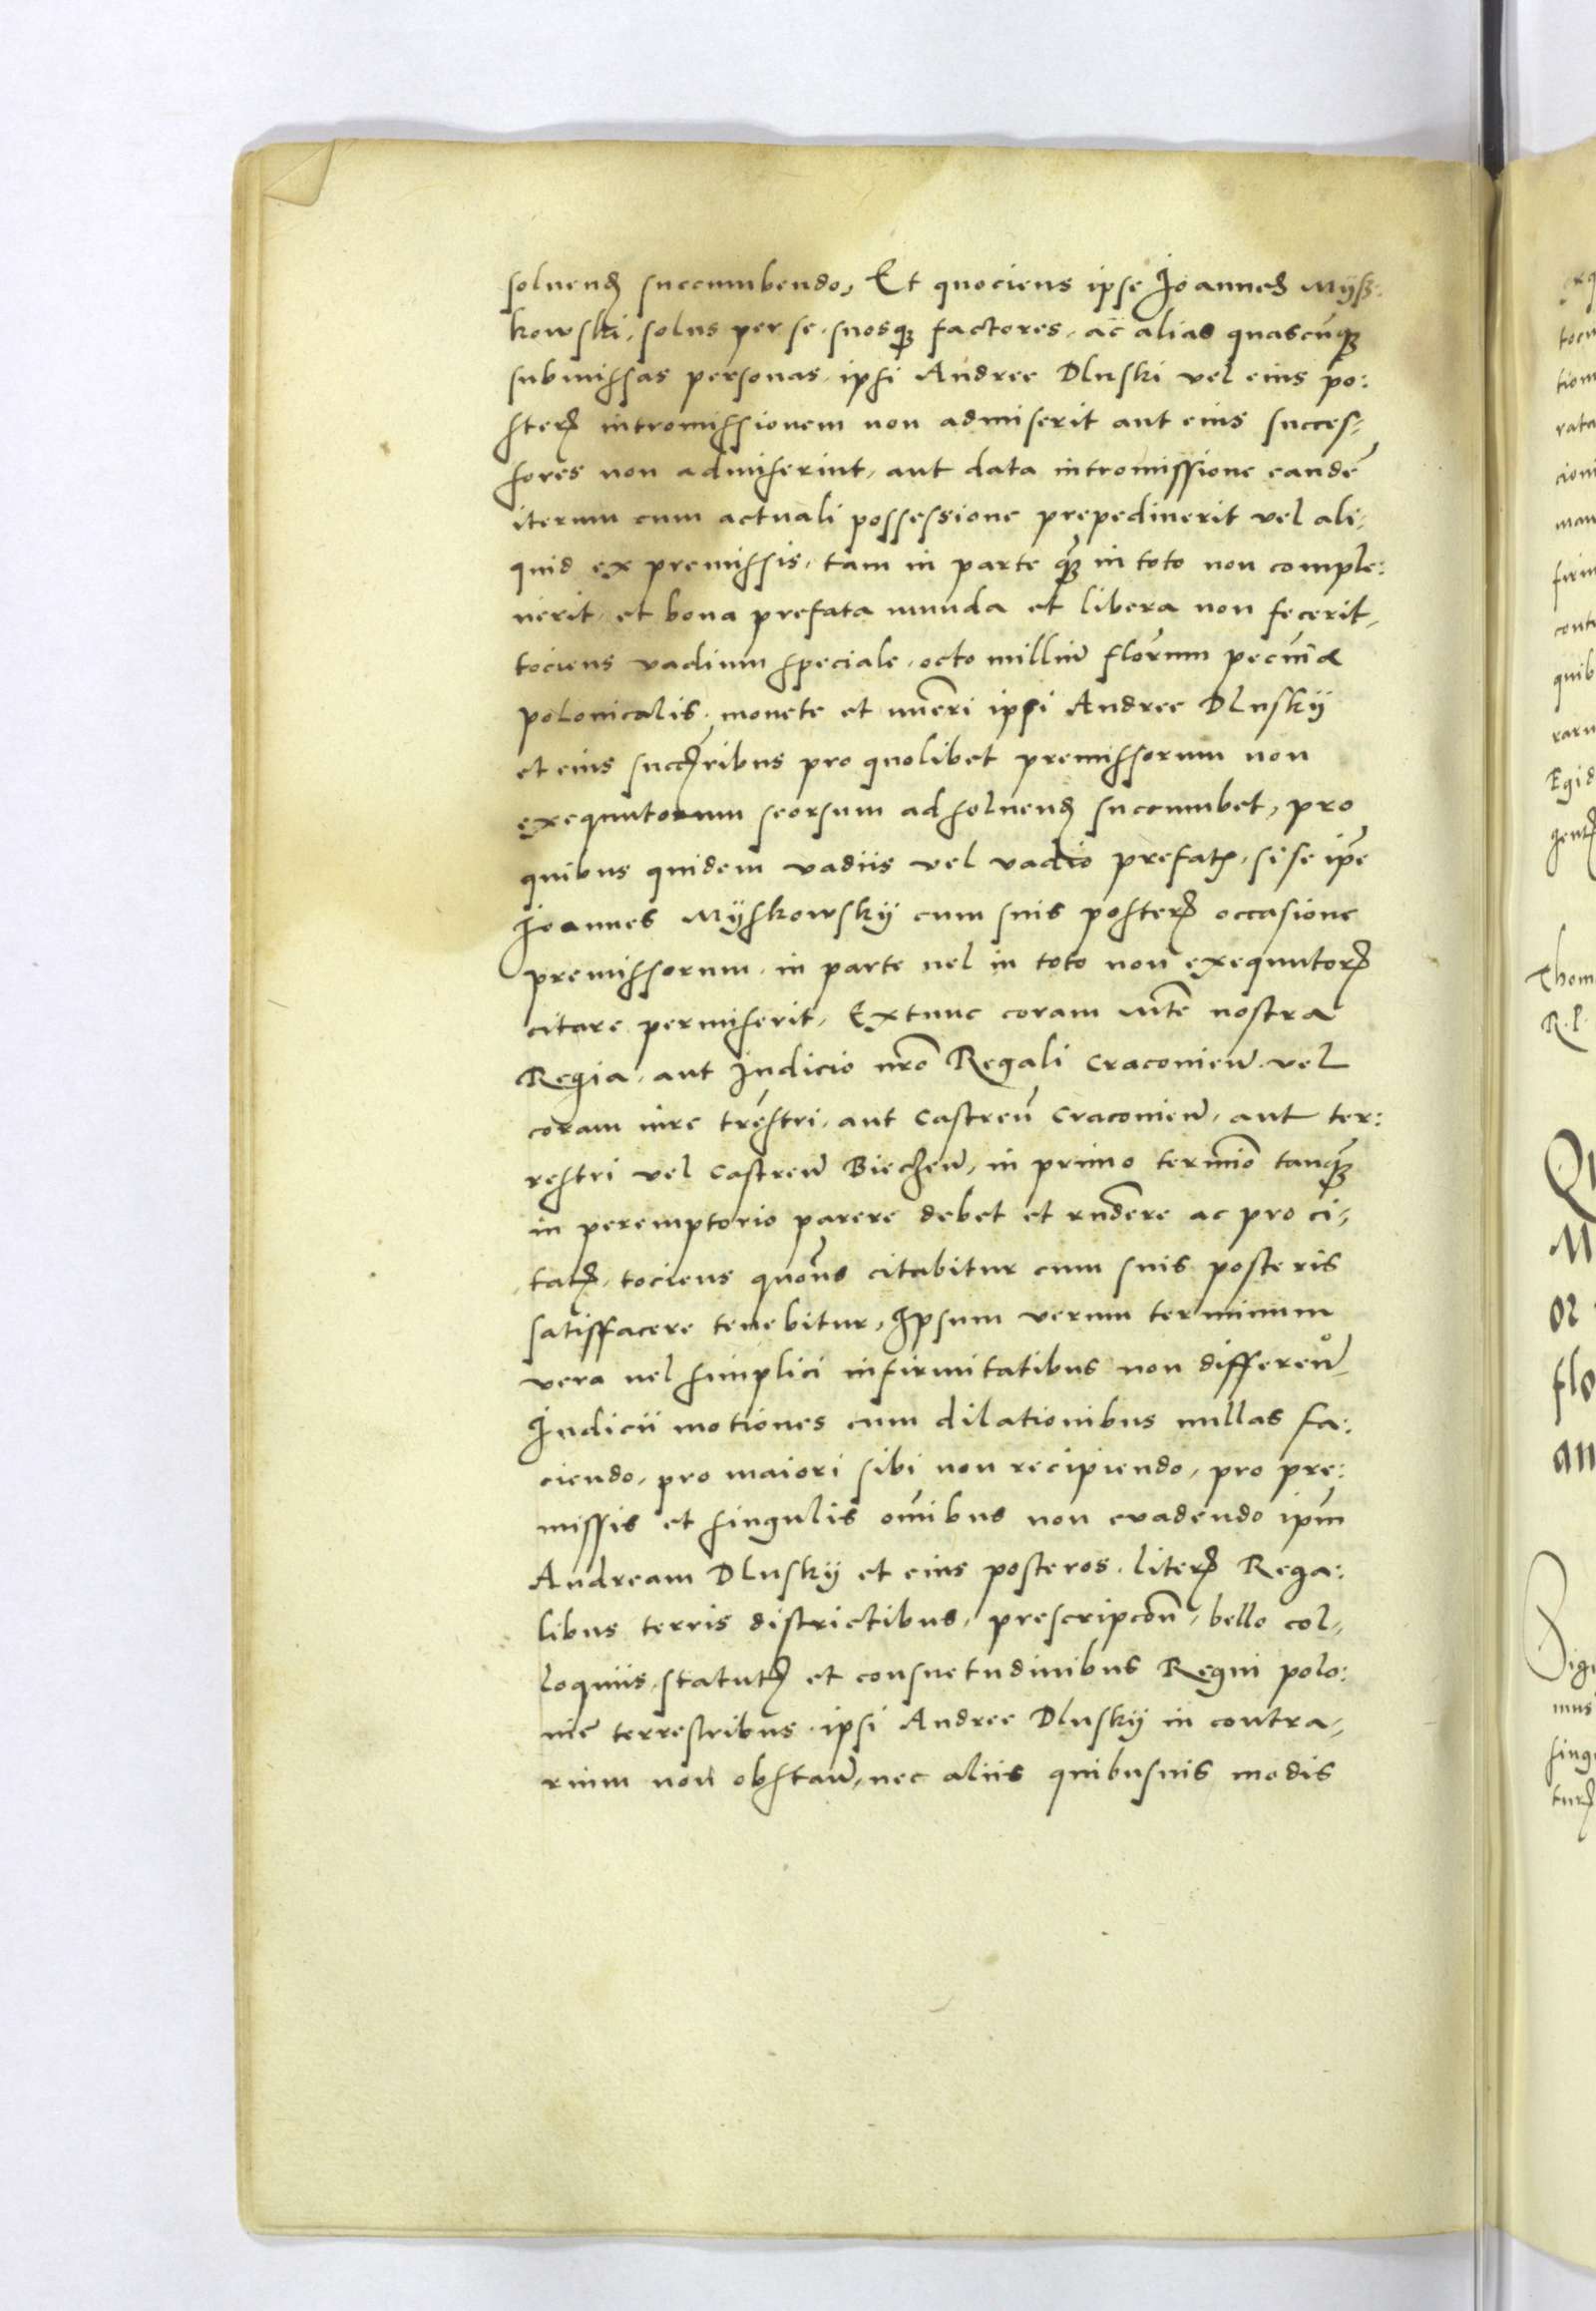 soluend succumbendo, Et quociens ipse Ioannes Mÿß:
kowski, solus per se, suosq factores, ac alias quascūq
submissas personas, ipsi Andree Dluski vel eius po:
ster intromissionem non admiserit aut eius succes-
sores non admiserint, aut data intromissione eandē
iterum cum actuali possessione prepediuerit vel ali-
quid ex premissis, tam in parte q̄ in toto non comple:
uerit, et bona prefata munda et libera non fecerit,
tociens vadium speciale, octo milliū flōrum pecūiæ
polonicalis, monete et nūeri ipsi Andree Dluskÿ
et eius succribus pro quolibet premissorum non
exequutorum seorsum ad soluend succumbet, pro
quibus quidem vadiis vel vadio prefat, si se ip̄e
Ioannes Mÿskowskÿ cum suis poster occasione
premissorum, in parte uel in toto non exequutor
citare permiserit, Extunc coram M̄te nostra
Regia, aut Iudicio nr̄o Regali Cracouieñ. vel
coram iure tr̄estri, aut Castreñ Cracouieñ, aut ter:
restri vel Castreñ Biecheñ, in primo termīo tanq̄
in peremptorio parere debet et rn̄dere ac pro ci-
tat, tociens quoc̄ns citabitur cum suis posteris
satisfacere tenebitur, Ipsum verum terminum
vera uel simplici infirmitatibus non differeñ,
Iudicii motiones cum dilationibus nullas fa:
ciendo, pro maiori sibi non recipiendo, pro pre:
missis et singulis om̄ibus non euadendo ip̄m
Andream Dluskÿ et eius posteros, liter Rega:
libus terris districtibus, prescripcōn, bello col-
loquiis, statut et consuetudinibus Regni polo:
nie terrestribus, ipsi Andree Dluskÿ in contra-
rium non obstañ, nec aliis quibusuis modis